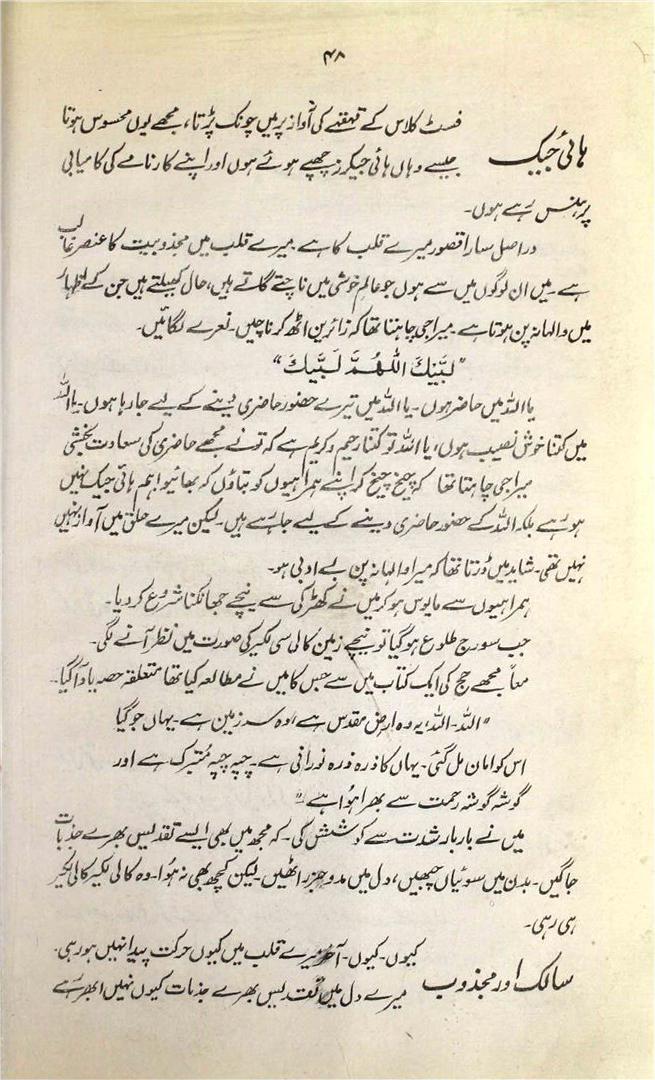 ۴۸
ہائی جیک
فسٹ کلاس کے قہقہے کی آواز پر میں چونک پڑتا، مجھے یوں محسوس ہوتا
جیسے وہاں ہائی جیکرز چھپے ہوئے ہوں اور اپنے کارنامے کی کامیابی
پر ہنس رہے ہوں۔
دراصل سارا قصور میرے قلب کا ہے۔ میرے قلب میں مجذوبیت کا عنصر غالب
ہے۔ میں ان لوگوں میں سے ہوں جو عالمِ خوشی میں ناچتے گاتے ہیں، حال کھیلتے ہیں جن کے اظہار
میں والہانہ پن ہوتا ہے۔ میرا جی چاہتا تھا کہ زائرین اٹھ کر ناچیں۔ نعرے لگائیں۔
"لَبَّیْکَ اَللّٰھُمَّ لَبَّیْکَ"
یا اللہ میں حاضر ہوں۔ یا اللہ میں تیرے حضور حاضری دینے کے لیے جا رہا ہوں۔ یا اللہ
میں کتنا خوش نصیب ہوں، یا اللہ تو کتنا رحیم و کریم ہے کہ تو نے مجھے حاضری کی سعادت بخشی
میرا جی چاہتا تھا کہ چیخ چیخ کر اپنے ہمراہیوں کو بتاؤں کہ بھائیو! ہم ہائی جیک نہیں
ہو رہے بلکہ اللہ کے حضور حاضری دینے کے لیے جا رہے ہیں۔ لیکن میرے حلق میں آواز نہیں
نہیں تھی۔ شاید میں ڈرتا تھا کہ میرا والہانہ پن بے ادبی ہو۔
ہمراہیوں سے مایوس ہو کر میں نے کھڑکی سے نیچے جھانکنا شروع کر دیا۔
جب سورج طلوع ہو گیا تو نیچے زمین کالی سی لکیر کی صورت میں نظر آنے لگی۔
معاً مجھے حج کی ایک کتاب میں سے جس کا میں نے مطالعہ کیا تھا متعلقہ حصہ یاد آ گیا۔
"اللہ۔ اللہ، یہ وہ ارضِ مقدس ہے، وہ سرزمین ہے۔ یہاں جو گیا
اس کو امان مل گئی۔ یہاں کا ذرہ ذرہ نورانی ہے۔ چپہ چپہ مُتبرک ہے اور
گوشہ گوشہ رحمت سے بھرا ہُوا ہے"
میں نے بار بار شدت سے کوشش کی۔ کہ مجھ میں بھی ایسے تقدیس بھرے جذبات
جاگیں۔ بدن میں سوئیاں چبھیں، دل میں مدو جزر اٹھیں۔ لیکن کچھ بھی نہ ہُوا۔ وہ کالی لکیر کالی لکیر
ہی رہی۔
سالک اور مجذوب
کیوں۔ کیوں۔ آخر میرے قلب میں کیوں حرکت پیدا نہیں ہو رہی۔
میرے دل میں تقدیس بھرے جذبات کیوں نہیں ابھر رہے